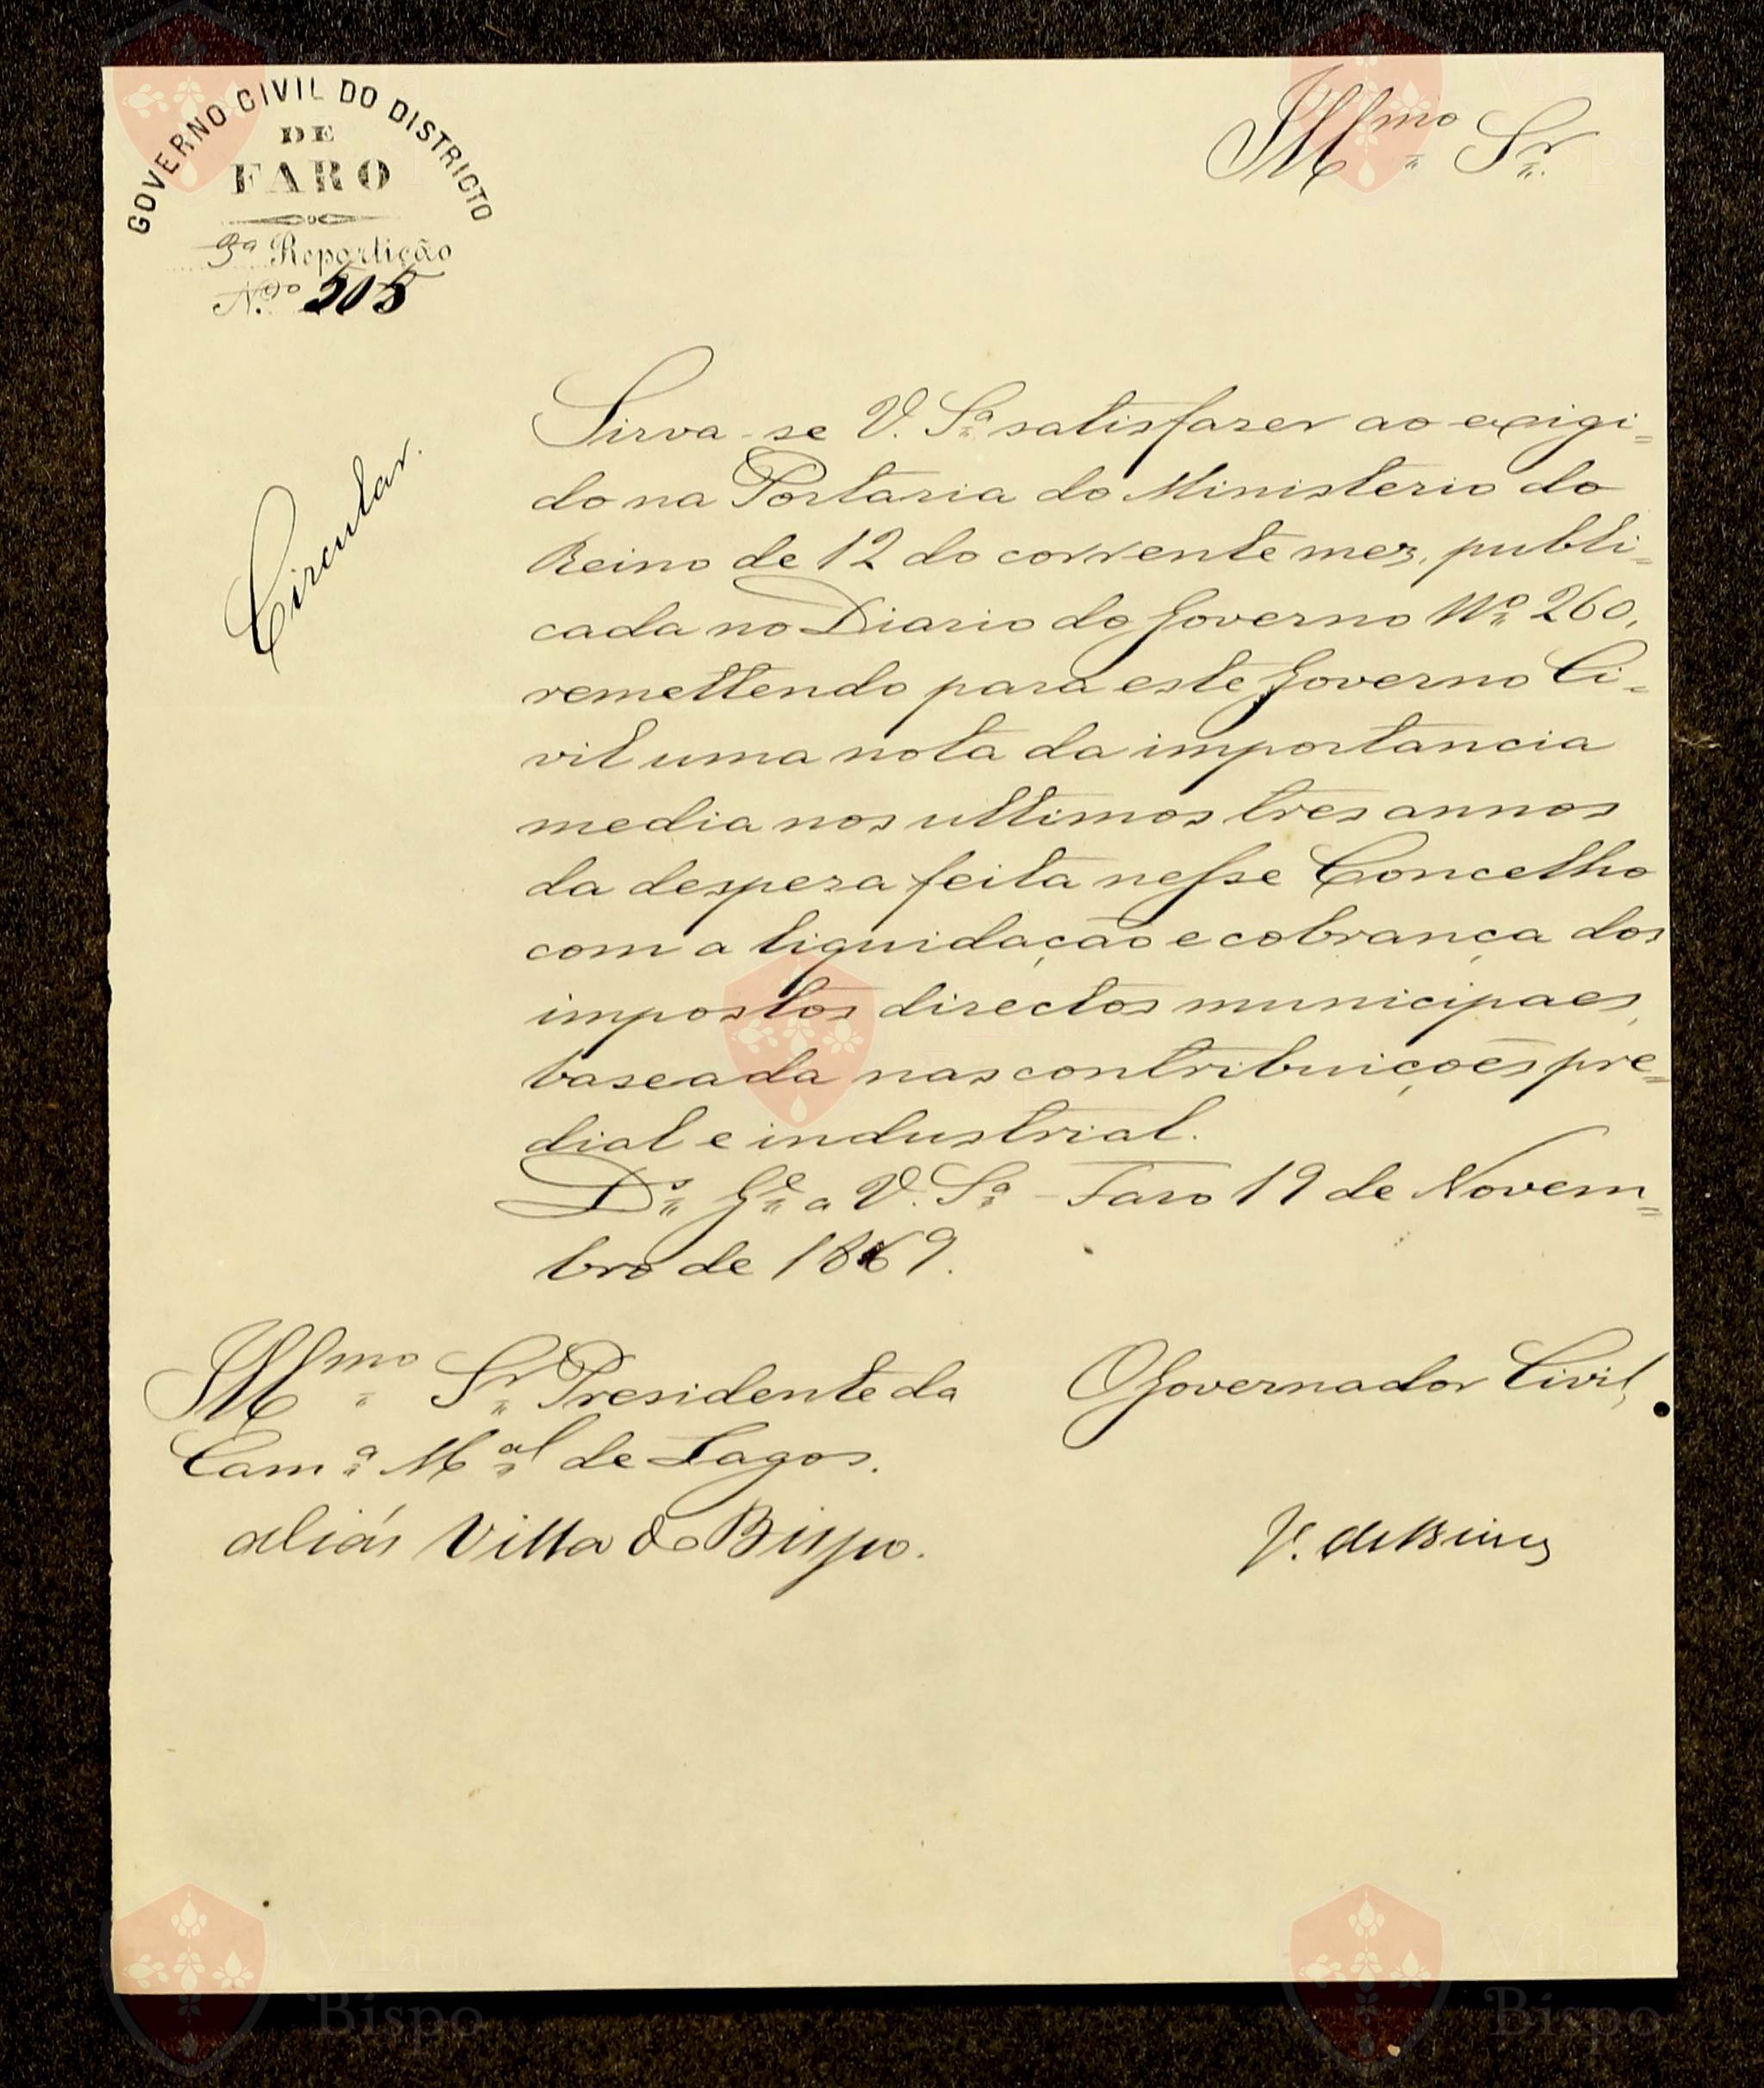 GOVERNO CIVIL DO DISTRICTO
DE
FARO
3ª Repartição
N.º 505
Illmo Sr.
Circular.
Sirva-se V. Sª satisfazer ao exigi=
do na Portaria do Ministerio do
Reino de 12 do corrente mez, publi=
cada no Diario do Governo Nº 260,
remettendo para este Governo Ci=
vil uma nota da importancia
media nos ultimos tres annos
da despeza feita nesse Concelho
com a liquidação e cobrança dos
impostos directos municipaes,
baseada nas contribuições pre=
dial e industrial.
Ds Gde a V. Sª - Faro 19 de Novem=
bro de 1869.
Illmo Sr Presidente da
Camª Mal de Lagos.
aliás Villa do Bispo.
O Governador Civil,
Vila do
Bispo
Vila do
Bispo